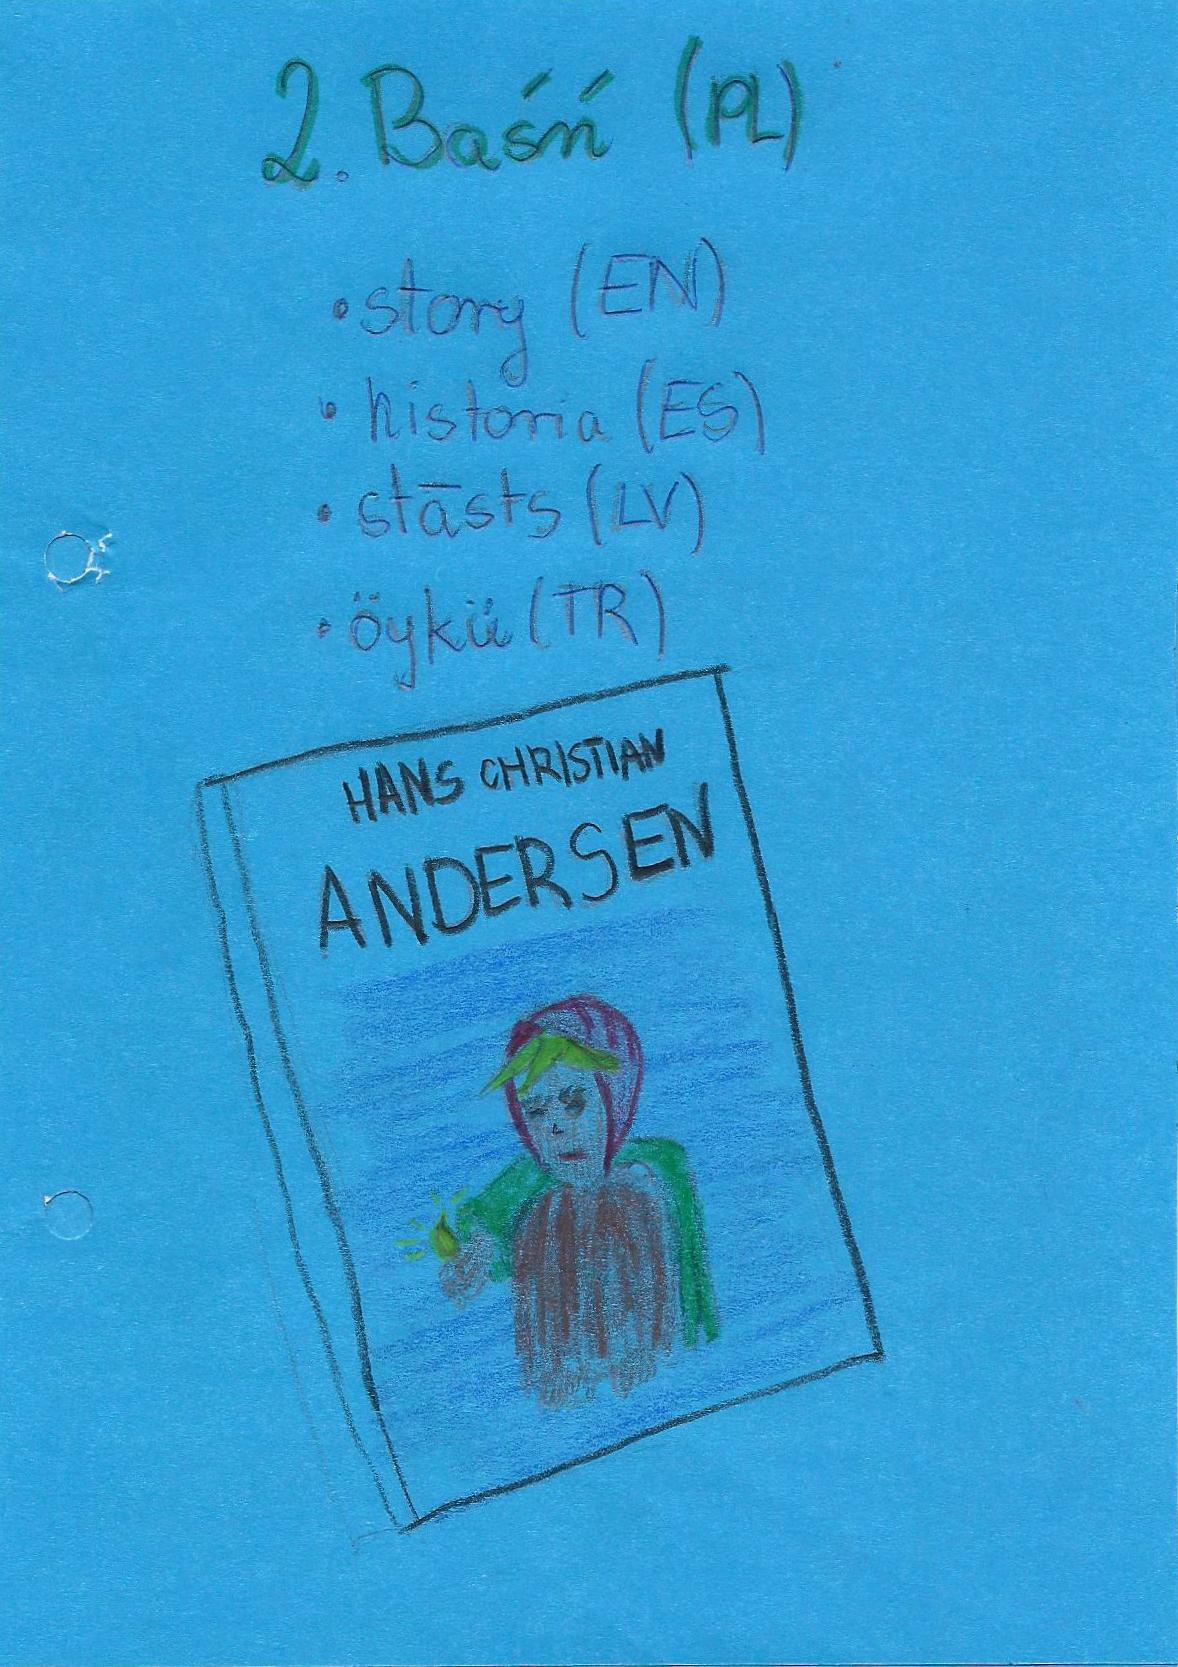 2. Baśń (PL)
• story (EN)
• historia (ES)
• stāsts (LV)
• öykü (TR)
HANS CHRISTIAN
ANDERSEN